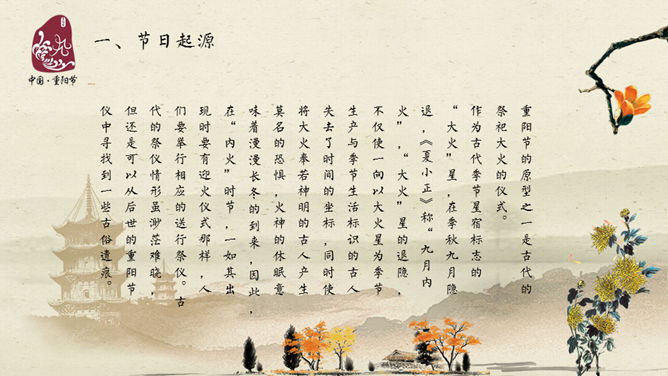 一、节日起源
中国·重阳节
重阳节的原型之一是古代的
祭祀大火的仪式。
作为古代季节星宿标志的
“大火”星，在季秋九月隐
退，《夏小正》称“九月内
火”，“大火”星的退隐，
不仅使一向以大火星为季节
生产与季节生活标识的古人
失去了时间的坐标，同时使
将大火奉若神明的古人产生
莫名的恐惧，火神的休眠意
味着漫漫长冬的到来，因此，
在“内火”时节，一如其出
现时要有迎火仪式那样，人
们要举行相应的送行祭仪。古
代的祭仪情形虽渺茫难晓，
但还是可以从后世的重阳节
仪中寻找到一些古俗遗痕。